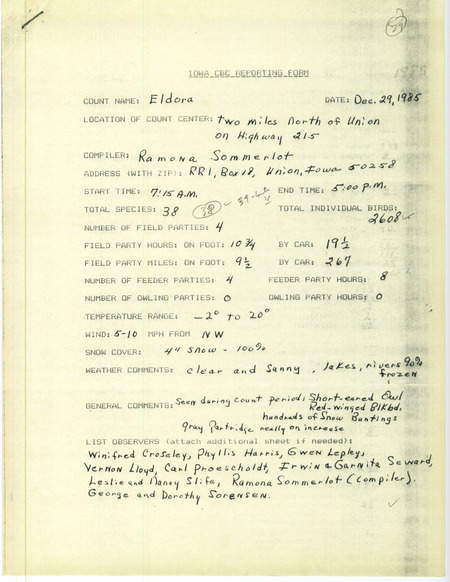 IOWA CBC REPORTING FORM
COUNT NAME: Eldora DATE: Dec. 29, 1985
LOCATION OF COUNT CENTER: two miles North of Union
on Highway 215
COMPILER: Ramona Sommerlot
ADDRESS (WITH ZIP): RR1, Box 18, Union, Iowa 50258
START TIME: 7:15 A.M. END TIME: 5:00 p.m.
TOTAL SPECIES: 38 38 TOTAL INDIVIDUAL BIRDS:
2608
NUMBER OF FIELD PARTIES: 4
FIELD PARTY HOURS: ON FOOT: 10 3/4 BY CAR: 19 1/2
FIELD PARTY MILES: ON FOOT: 9 1/2 BY CAR: 267
NUMBER OF FEEDER PARTIES: 4 FEEDER PARTY HOURS: 8
NUMBER OF OWLING PARTIES: 0 OWLING PARTY HOURS: 0
TEMPERATURE RANGE: -2° TO 20°
WIND: 5-10 MPH FROM NW
SNOW COVER: 4" snow - 100%
WEATHER COMMENTS: clear and sunny. lakes, rivers 90%
frozen
GENERAL COMMENTS: Seen during count period: Short-eared Owl
Red-winged Blkbd,
hundreds of Snow Buntings
Gray Partridge really on increase
LIST OBSERVERS (attach additional sheet if needed):
Winifred Croseley, Phyllis Harris, Gwen Lepley,
Vernon Lloyd, Carl Proescholdt, Irwin & Garnita Seward,
Leslie and Nancy Slife, Ramona Sommerlot (compiler).
George and Dorothy Sorensen.